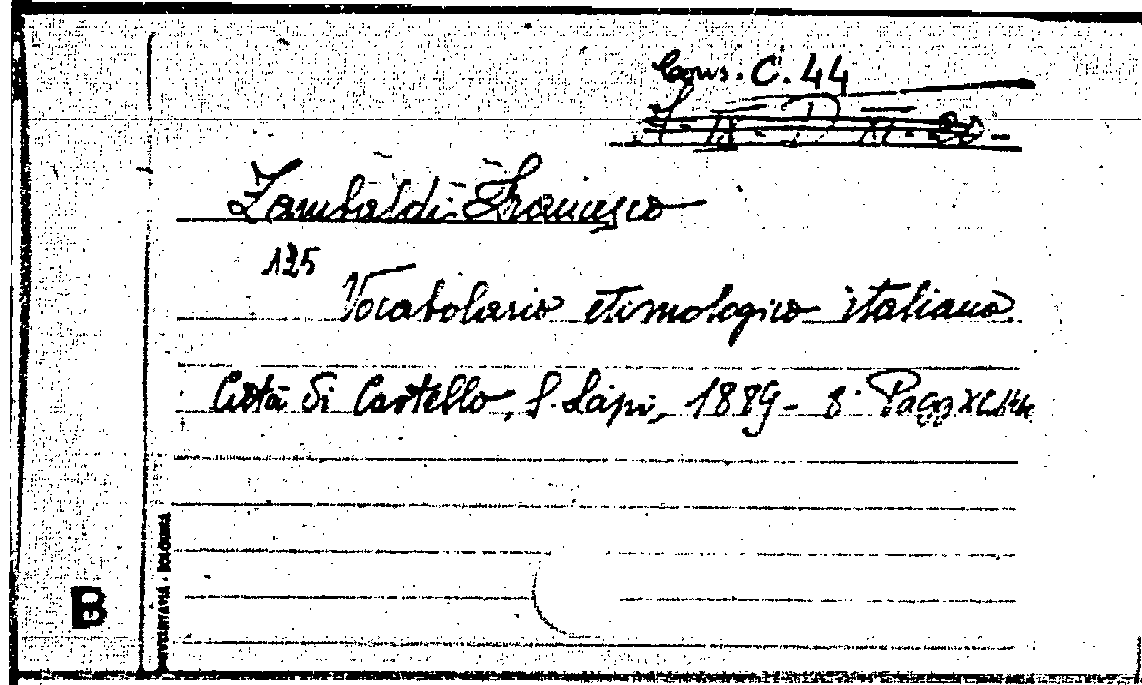 Cons. C. 44
Zambaldi Francesco
125
Vocabolario etimologico italiano.
Città di Castello, S. Lapi, 1889 - 8° Pagg
B